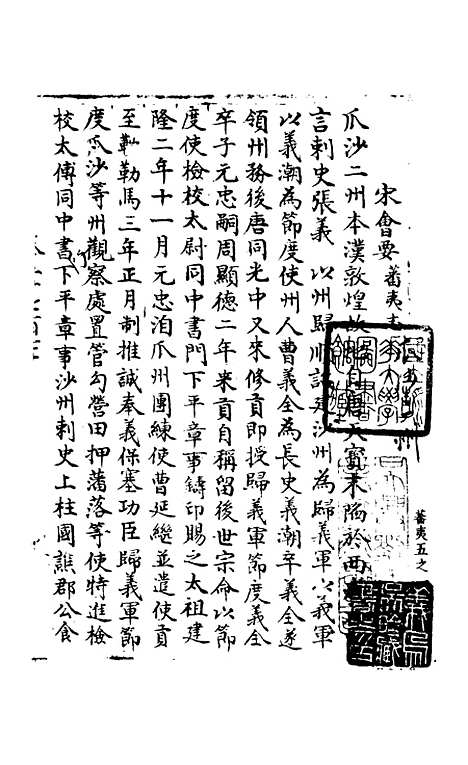 宋會要 蕃夷五
瓜沙二州本漢敦煌故地自唐天寶末陷於西
言刺史張義 以州歸順詔建沙州為歸義軍以義軍
以義潮為節度使州人曹義全為長史義潮卒義全遂
領州務後唐同光中又來修貢即授歸義軍節度義全
卒子元忠嗣周顯德二年來貢自稱留後世宗命以節
度使檢校太尉同中書門下平章事鑄印賜之太祖建
隆二年十一月元忠洎瓜州團練使曹延繼並遣使貢
至勒馬三年正月制推誠奉義保塞功臣歸義軍節
度瓜沙等州觀察處置管勾營田押蕃落等使特進檢
校太傅同中書下平章事沙州刺史上柱國譙郡公食
行
蕃夷五之